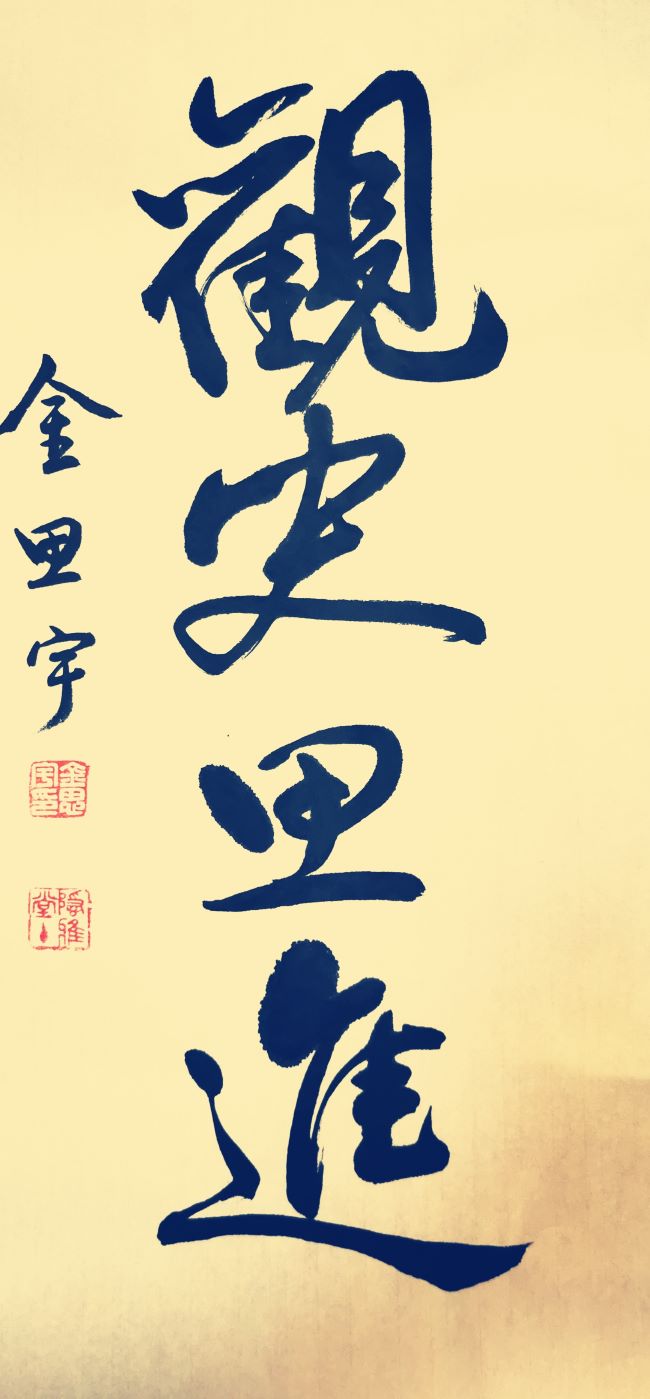 觀史思進
金思宇
金思宇印
隱雅堂